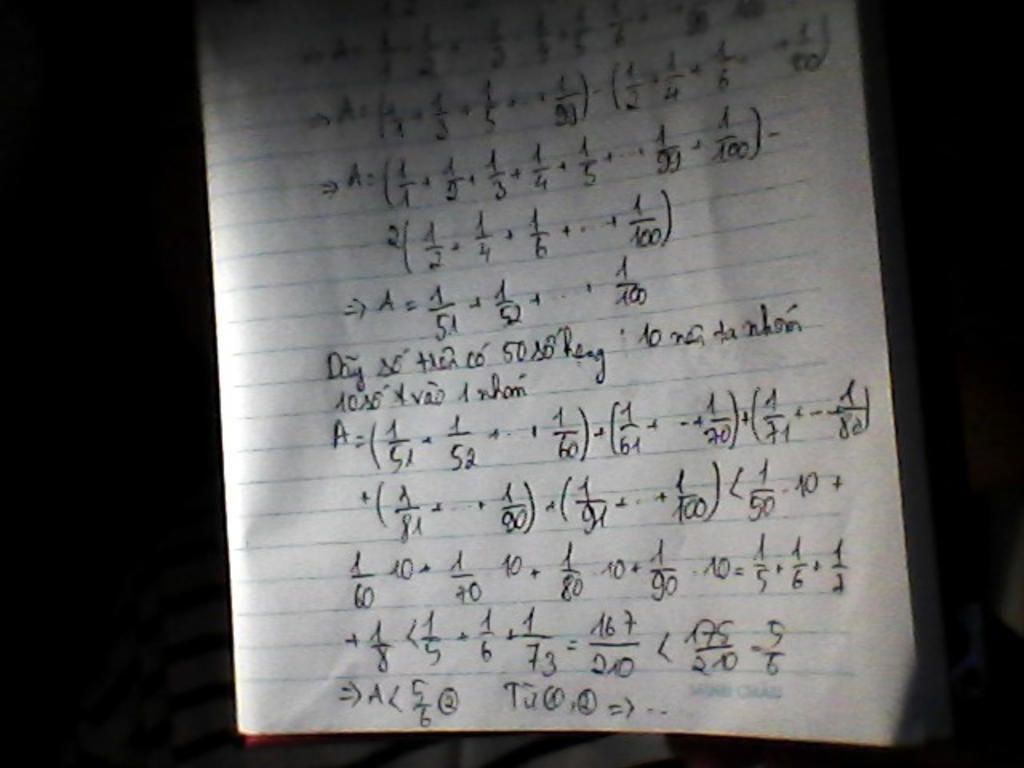 => A = 1/1 - 1/2 + 1/3 - 1/4 + 1/5 - 1/6 + ...
=> A = (1/1 + 1/3 + 1/5 + ... + 1/99) - (1/2 + 1/4 + 1/6 ... + 1/100)
=> A = (1/1 + 1/2 + 1/3 + 1/4 + 1/5 + ... + 1/99 + 1/100) -
2(1/2 + 1/4 + 1/6 + ... + 1/100)
=> A = 1/51 + 1/52 + ... + 1/100
Dãy số trên có 50 số hạng : 10 nên ta nhóm
10 số vào 1 nhóm
A = (1/51 + 1/52 + ... + 1/60) + (1/61 + ... + 1/70) + (1/71 + ... + 1/80)
+ (1/81 + ... + 1/90) + (1/91 + ... + 1/100) < 1/50 . 10 +
1/60 . 10 + 1/70 . 10 + 1/80 . 10 + 1/90 . 10 = 1/5 + 1/6 + 1/7
+ 1/8 < 1/5 + 1/6 + 1/7 3 = 167/210 < 175/210 = 5/6
=> A < 5/6 ② Từ ①, ② => ...
MINH CHÂU